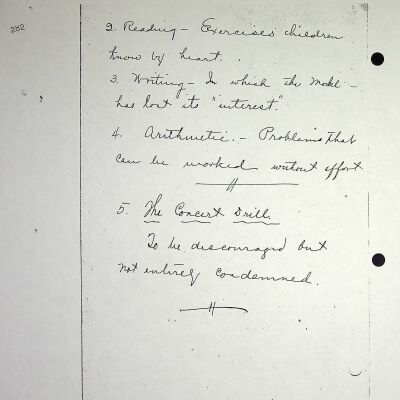 282
2. Reading – Exercises children
know by heart.
3. Writing – In which the model –
has lost its "interest."
4. Arithmetic. – Problems that
can be worked without effort
5. The Concert Drill.
To be discouraged but
not entirely condemned.